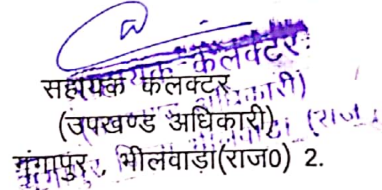 सहायक कलक्टर
(उपखण्ड अधिकारी)
गंगापुर, भीलवाड़ा(राज0) 2.